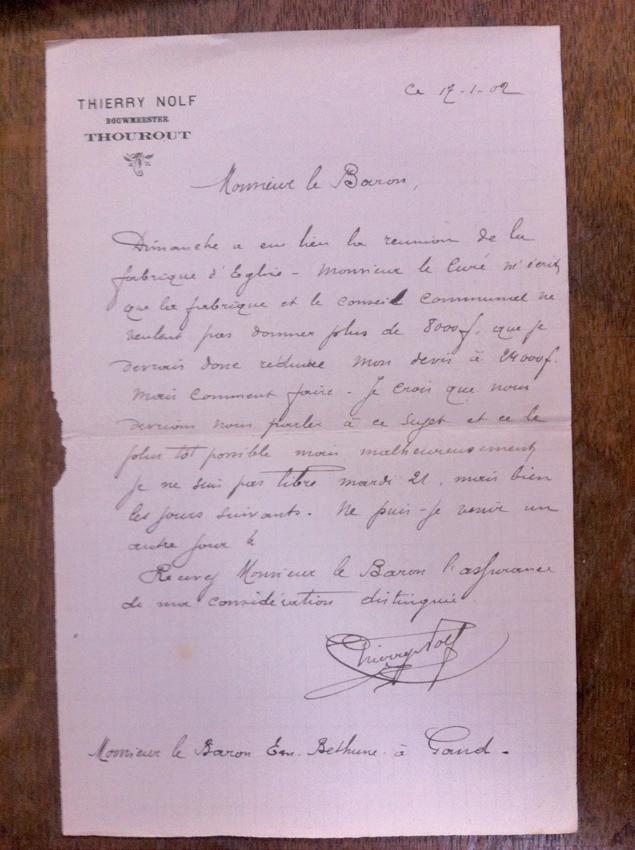 THIERRY NOLF
BOUWMEESTER
THOUROUT
Ce 17-1-02
Monsieur le Baron,
Dimanche a eu lieu la reunion de la
fabrique d'Eglise - Monsieur le Curé m'écrit
que la fabrique et le conseil communal ne
veulent pas donner plus de 8000f, que je
devrais donc réduire mon devis à 24000f.
Mais comment faire - Je crois que nous
devrions nous parler à ce sujet et ce le
plus tot possible mais malheureusement
je ne suis pas libre mardi 21, mais bien
les jours suivants. Ne puis-je venir un
autre jour
Recevez Monsieur le Baron l'assurance
de ma considération distinguée.
Thierry Nolf
Monsieur le Baron Em. Bethune à Gand -